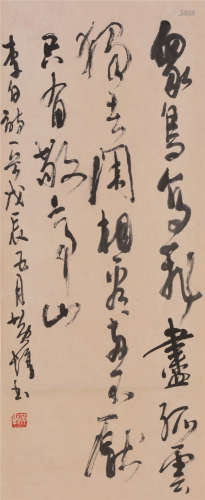 眾鳥高飛盡孤雲
獨去閑相看兩不厭
只有敬亭山
李白詩一首戊辰五月書